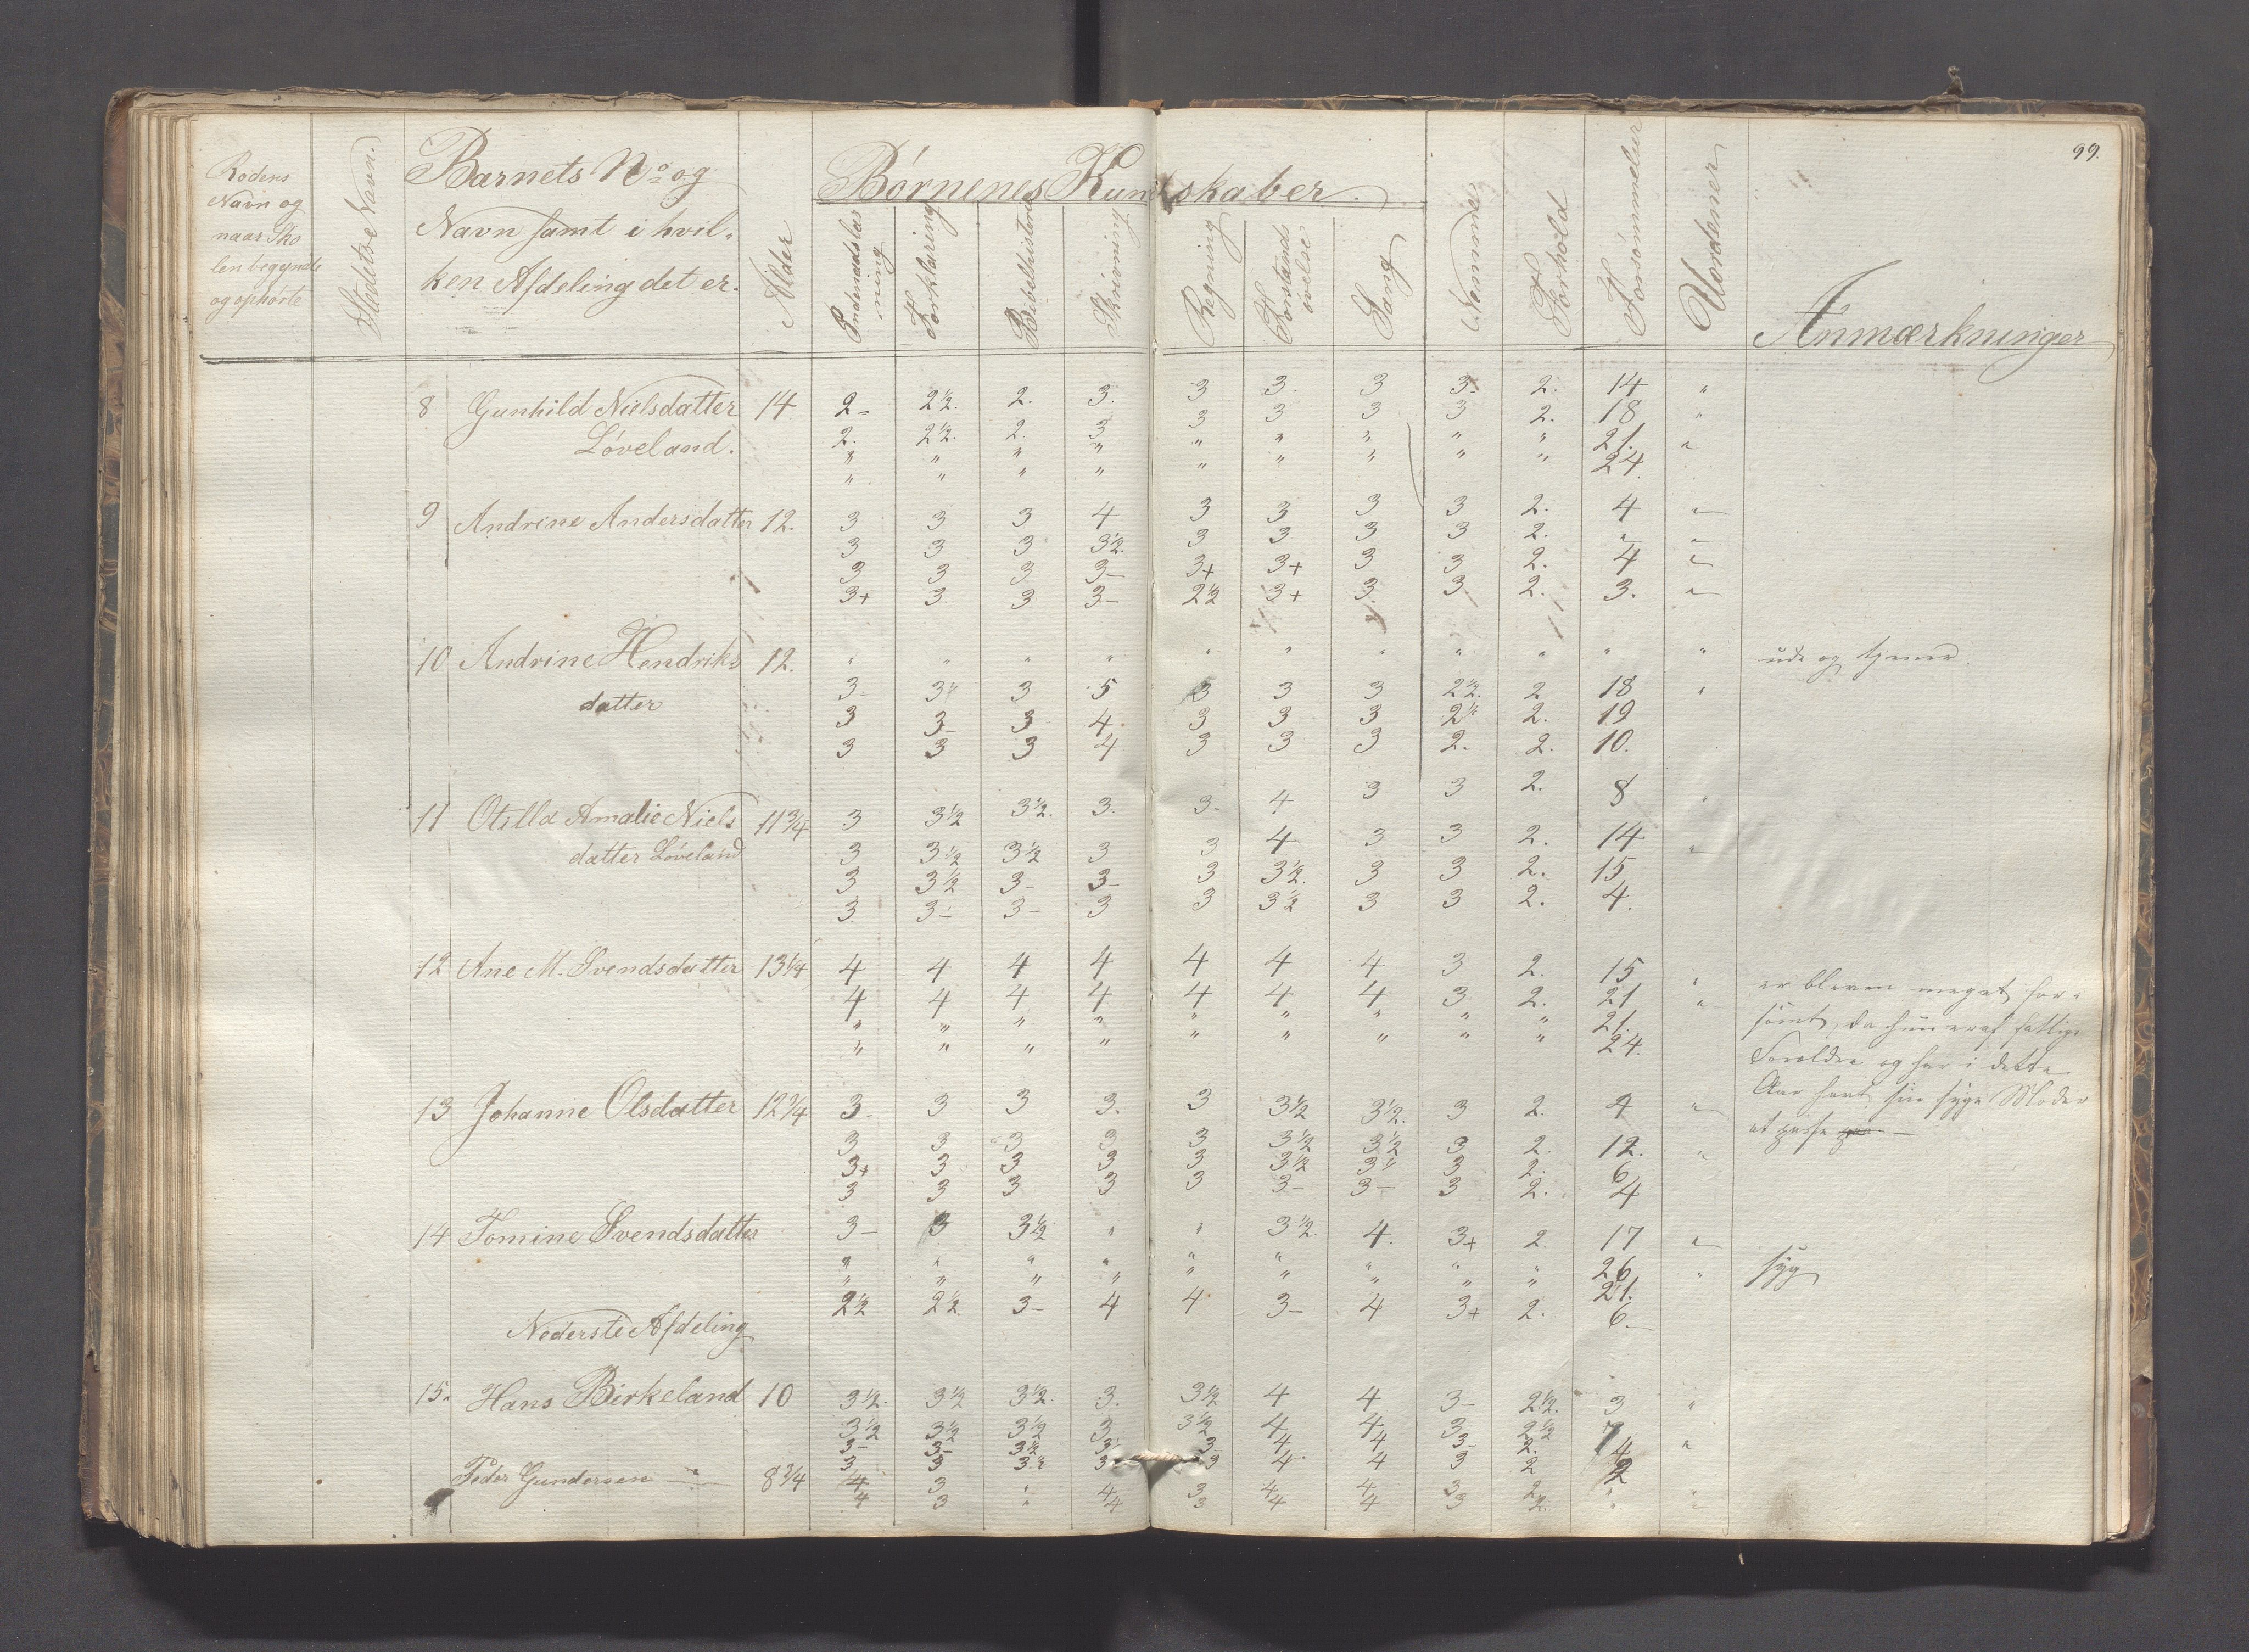 99.
Rodens
Navn og
naar Sko
len begyndte
og ophørte
Stedets Navn.
Barnets No og
Navn samt i hvil-
ken Afdeling det er.
Alder
Børnenes Kundskaber.
Indenadslæsning
Forklaring
Bibelhistorie
Skrivning
Regning
Forstands øvelse
Sang
Nemme
Forhold
Forsømmelser
Uordener
Anmærkninger
8 Gunhild Nielsdatter 14 2- 2½. 2. 3. 3 3. 3 3. 2. 14 "
Løveland. 2. 2½. 2. 3 3 3 3 3 2. 18 "
" " " " " " " " " 21. "
" " " " " " " " " 24.
9 Andrine Andersdatter 12. 3 3 3 4 3 3 3 3 2. 4 "
3 3 3 3½. 3 3 3 3 2. " "
3 3 3 3- 3+ 3+ 3 3 2. 4 "
3+ 3 3 3- 2½ 3+ 3. 3. 2. 3. "
10 Andrine Hendriks 12. " " " " " " " " " " " ude og tjener.
datter 3- 3½ 3 5 3 3 3 2½. 2 18 "
3 3- 3 4. 3 3 3 2½ 2. 19
3 3 3 4 3 3 3 2. 2. 10.
11 Otilla Amalie Niels 11¾ 3 3½ 3½. 3. 3- 4 3 3 2. 8
datter Løveland 3 3½ 3½ 3 3 4. 3 3 2. 14 "
3 3½ 3- 3- 3 3½. 3 3 2. 15
3 3- 3- 3 3 3½ 3 3 2. 4.
12 Ane M. Svendsdatter 13¼ 4 4 4 4 4 4 4 3 2. 15 " er bleven meget for-
4 4 4 4 4 4 4 3. 2. 21 " sømt, da hun er af fattige
" " " " " " " " " 21. Forældre og har i dette
" " " " " " " " " 24. Aar havt sin syge Moder
at passe
13 Johanne Olsdatter 12¾ 3- 3 3 3. 3 3½ 3½. 3 2. 4 "
3 3 3 3 3 3½ 3½ 3 2. 12. "
3+ 3 3 3 3 3½ 3½ 3 2. 6
3 3 3 3 3 3- 3- 3 2. 4
14 Tomine Svendsdatter 3- 3 3½ " " 3½. 4. 3+ 2. 17 "
" " " " " " " " " 26 " syg
" " " " " " " " " 21.
2½ 2½ 3- 4 4 3- 4 3+ 2. 6.
Nederste Afdeling
15. Hans Birkeland 10 3½. 3½ 3½. 3. 3½ 4 4 3- 2½. 3 "
3½ 3½ 3½ 3 3½ 4 4 3 2½ 7
3- 3- 3½ 3 3- 4 4 3- 2. 4 "
3 3 3½ 3 3 4. 4 3 2 2
Peder Gundersen 8¾ 4 3 " 4 3 4 4 3 2 " "
4 3 " 4 3 4 4 3 2. " "